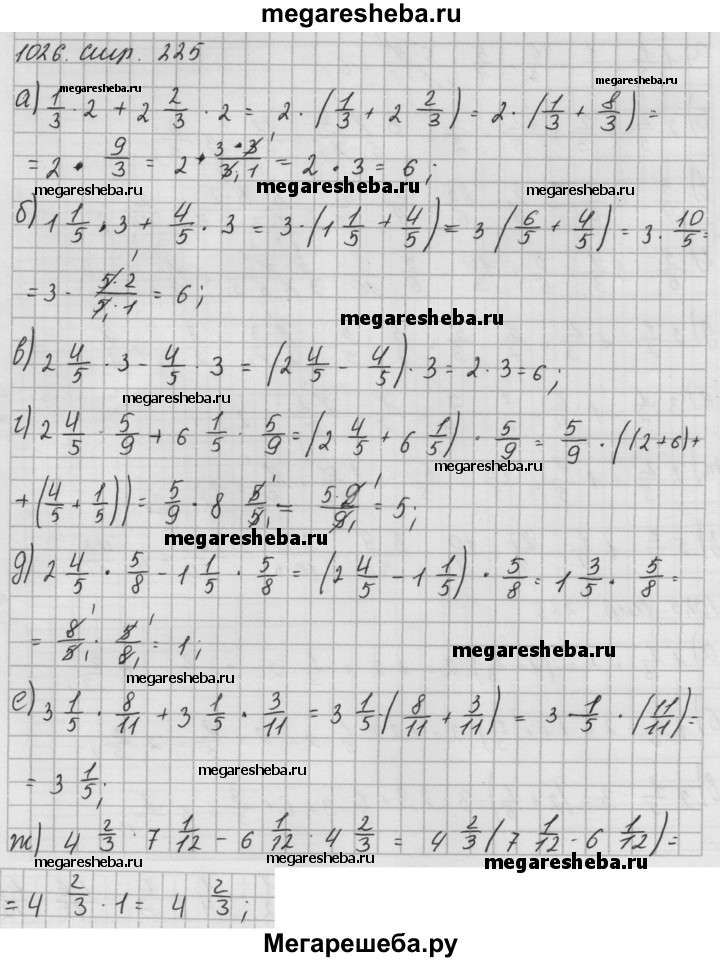 megaresheba.ru
1026. стр. 225
megaresheba.ru
megaresheba.ru
а) 1/3 · 2 + 2 2/3 · 2 = 2 · (1/3 + 2 2/3) = 2 · (1/3 + 8/3) =
= 2 · 9/3 = 2 · 3·3/3·1 = 2 · 3 = 6;
megaresheba.ru megaresheba.ru megaresheba.ru
б) 1 1/5 · 3 + 4/5 · 3 = 3 · (1 1/5 + 4/5) = 3 (6/5 + 4/5) = 3 · 10/5 =
= 3 · 5·2/5·1 = 6;
megaresheba.ru
в) 2 4/5 · 3 - 4/5 · 3 = (2 4/5 - 4/5) · 3 = 2 · 3 = 6;
megaresheba.ru
г) 2 4/5 · 5/9 + 6 1/5 · 5/9 = (2 4/5 + 6 1/5) · 5/9 = 5/9 · ((2+6)+
megaresheba.ru
+ (4/5 + 1/5)) = 5/9 · 8 5/5 = 5·9/9 = 5;
megaresheba.ru
д) 2 4/5 · 5/8 - 1 1/5 · 5/8 = (2 4/5 - 1 1/5) · 5/8 = 1 3/5 · 5/8 =
= 8/5 · 5/8 = 1;
megaresheba.ru
megaresheba.ru
е) 3 1/5 · 8/11 + 3 1/5 · 3/11 = 3 1/5 (8/11 + 3/11) = 3 1/5 · (11/11) =
= 3 1/5;
megaresheba.ru megaresheba.ru
ж) 4 2/3 · 7 1/12 - 6 1/12 · 4 2/3 = 4 2/3 (7 1/12 - 6 1/12) =
megaresheba.ru megaresheba.ru megaresheba.ru
= 4 2/3 · 1 = 4 2/3;
Мегарешеба.ру